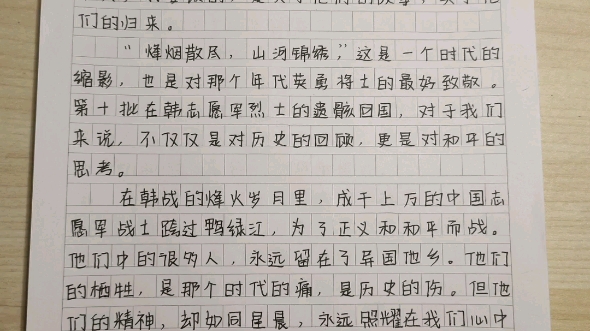 们的归来。
“烽烟散尽,山河锦绣,”这是一个时代的
缩影,也是对那个年代英勇将士的最好致敬。
第十批在韩志愿军烈士的遗骸回国,对于我们
来说,不仅仅是对历史的回顾,更是对和平的
思考。
在韩战的烽火岁月里,成千上万的中国志
愿军战士跨过鸭绿江,为了正义和和平而战。
他们中的很多人,永远留在了异国他乡。他们
的牺牲,是那个时代的痛,是历史的伤。但他
们的精神,却如同星晨,永远照耀在我们心中